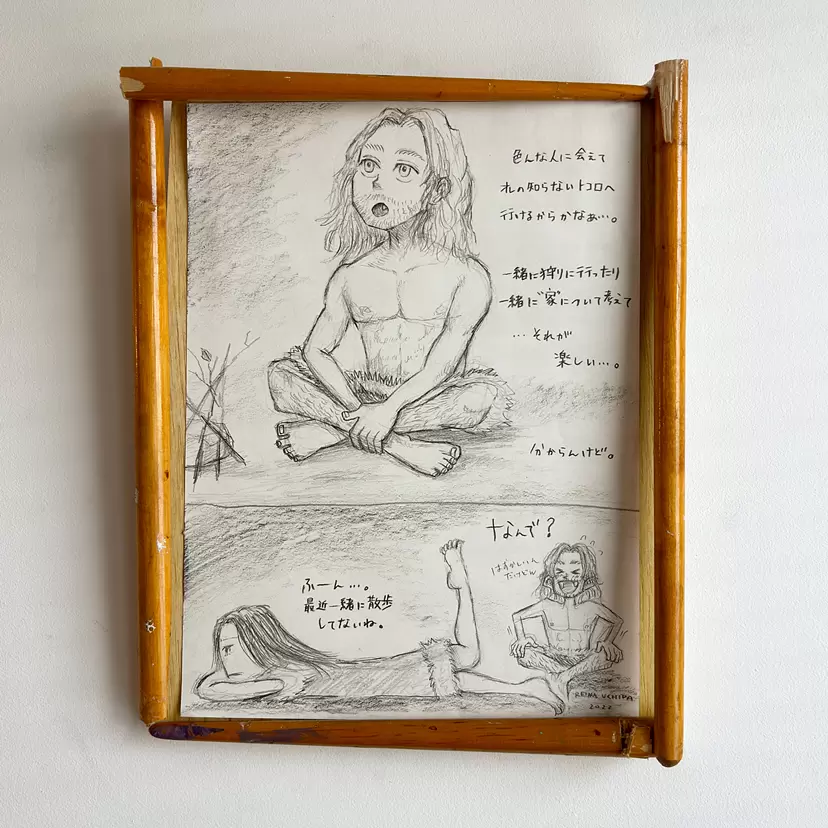 色んな人に会えて
オレの知らないトコロへ
行けるからかなぁ…。
一緒に狩りに行ったり
一緒に"家"について考えて
…それが
楽しい…。
分からんけど。
なんで?
はずかしいん
だけどw
ふーん…。
最近一緒に散歩
してないね。
REINA UCHIDA
2022